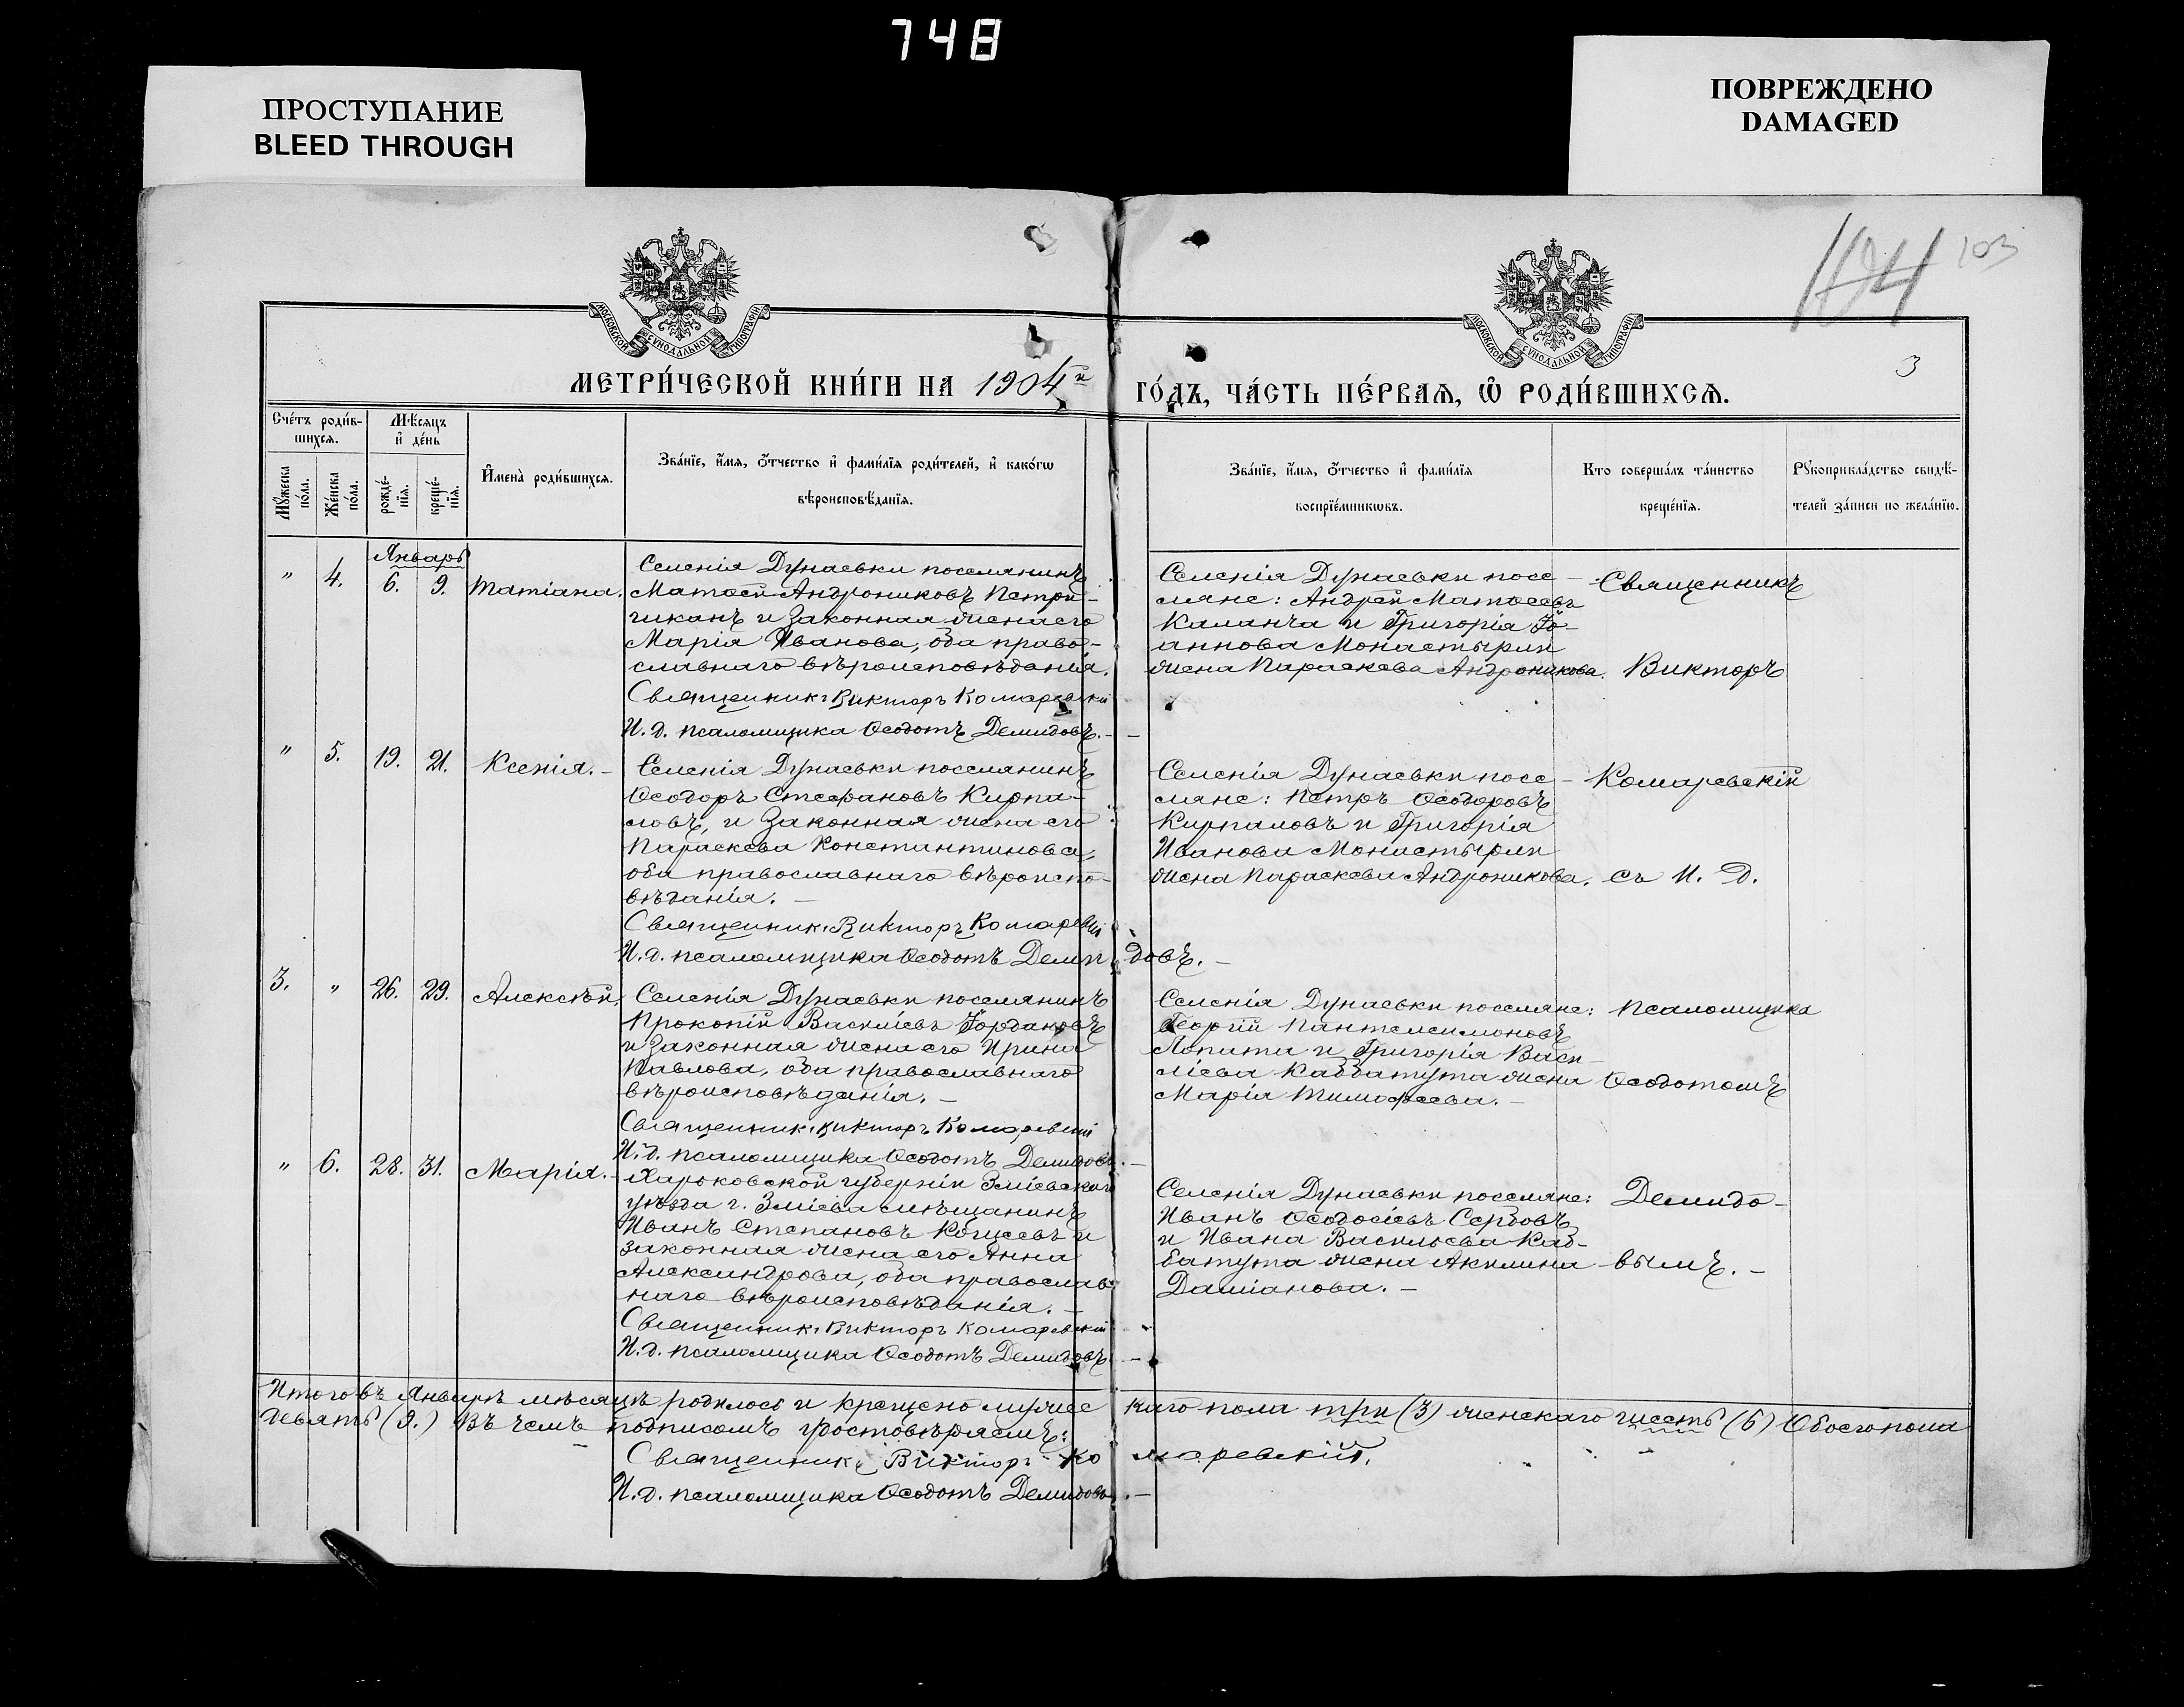 748
ПРОСТУПАНИЕ
BLEED THROUGH
ПОВРЕЖДЕНО
DAMAGED
103
3
МОСКОВСКОЙ СѴНОДАЛЬНОЙ ТИПОГРАФІИ
МОСКОВСКОЙ СѴНОДАЛЬНОЙ ТИПОГРАФІИ
МЕТРИ́ЧЕСКОЙ КНИ́ГИ НА 1904й ГО́ДЪ, ЧА́СТЬ ПЕ́РВАѦ, Ѽ РОДИ́ВШИХСѦ.
Сче́тъ роди́в-
шихсѧ.
Мꙋ́жеска по́ла.
Же́нска по́ла.
Мѣ́сѧцъ и҆ де́нь
рожде́-нїѧ.
креще́-нїѧ.
И҆мена̀ роди́вшихсѧ.
Зва́нїе, и҆́мѧ, ѻ҆́тчество и҆ фами́лїѧ роди́телей, и҆ како́гѡ
вѣроисповѣ́данїѧ.
Зва́нїе, и҆́мѧ, ѻ҆́тчество и҆ фами́лїѧ
воспрїе́мникѡвъ.
Кто соверша́лъ та́инство
креще́нїѧ.
Рꙋкоприкла́дство свидѣ́-
телей за́писи по жела́нїю.
Январь
" 4. 6. 9. Татіана.
Селенія Дунаевки поселянинъ
Матѳей Андрониковъ Петри-
чканъ и законная жена его
Марія Иванова, оба право-
славнаго вѣроисповѣданія.
Священникъ Викторъ Комаревскій
И. д. псаломщика Ѳеодотъ Демидовъ. –
Селенія Дунаевки посе-
ляне: Андрей Матѳеевъ
Каланча и Григорія Іо-
аннова Монастырли
жена Параскева Андроникова.
" 5. 19. 21. Ксенія. –
Селенія Дунаевки поселянинъ
Ѳеодоръ Стефановъ Кирпа-
ловъ, и законная жена его
Параскева Константинова,
оба православнаго вѣроиспо-
вѣданія. –
Священникъ Викторъ Комаревскій
И. д. псаломщика Ѳеодотъ Демидовъ. –
Селенія Дунаевки посе-
ляне: Петръ Ѳеодоровъ
Кирпаловъ и Григорія
Иванова Монастырли
жена Параскева Андроникова.
3. " 26. 29. Алексѣй.
Селенія Дунаевки поселянинъ
Прокопій Васильевъ Іордановъ
и законная жена его Ирина
Павлова, оба православнаго
вѣроисповѣданія. –
Священникъ Викторъ Комаревскій
И. д. псаломщика Ѳеодотъ Демидовъ. –
Селенія Дунаевки поселяне:
Георгій Пантелеимоновъ
Лопита и Григорія Васи-
ліева Каббатута жена
Марія Тимоѳеева. –
" 6. 28. 31. Марія. –
Харьковской губерніи Зміевскаго
уѣзда г. Зміева мѣщанинъ
Иванъ Степановъ и
законная жена его Анна
Александрова, оба православ-
наго вѣроисповѣданія. –
Священникъ Викторъ Комаревскій
И. д. псаломщика Ѳеодотъ Демидовъ –
Селенія Дунаевки поселяне:
Иванъ Ѳеодосіевъ Сербовъ
и Ивана Васильева Каб-
батута жена Акилина
Даміанова. –
Священникъ
Викторъ
Комаревскій
съ И. Д.
Псаломщика
Ѳеодотомъ
Демидо-
вымъ. –
Итого въ Январѣ мѣсяцѣ родилось и крещено мужес каго пола три (3) женскаго шесть (6) Обоего пола
девять (9.) Въ чемъ подписомъ удостовѣряемъ:
Священникъ Викторъ Комаревскій.
И. д. псаломщика Ѳеодотъ Демидовъ. –